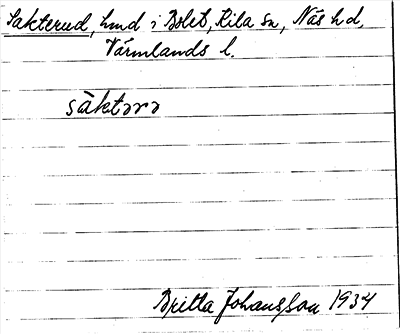 Sakterud, hmd i Bolet, Kila sn, Näs hd,
Värmlands l.
sàktərə
Britta Johansson 1934